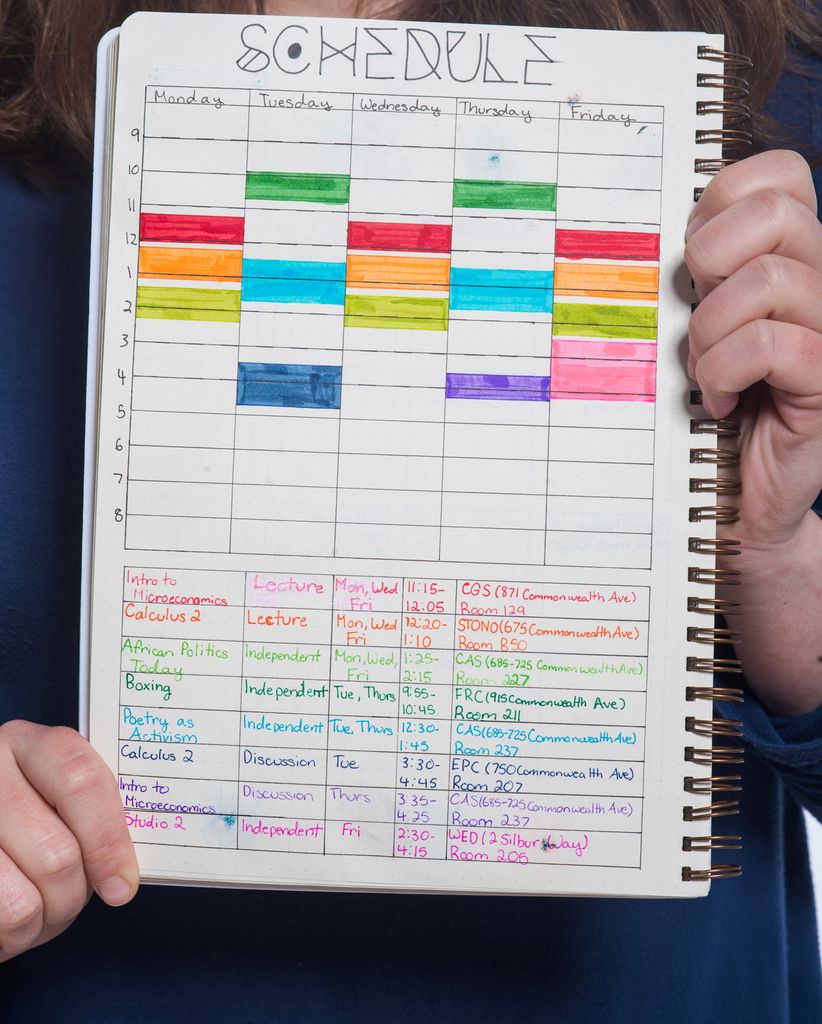 SCHEDULE
Monday Tuesday Wednesday Thursday Friday
9
10
11
12
1
2
3
4
5
6
7
8
Intro to Microeconomics Lecture Mon, Wed Fri 11:15-12:05 CGS (871 Commonwealth Ave) Room 129
Calculus 2 Lecture Mon, Wed Fri 12:20-1:10 STONO (675 Commonwealth Ave) Room B50
African Politics Today Independent Mon, Wed, Fri 1:25-2:15 CAS (685-725 Commonwealth Ave) Room 227
Boxing Independent Tue, Thurs 9:55-10:45 FRC (915 Commonwealth Ave) Room 211
Poetry as Activism Independent Tue, Thurs 12:30-1:45 CAS (685-725 Commonwealth Ave) Room 237
Calculus 2 Discussion Tue 3:30-4:45 EPC (750 Commonwealth Ave) Room 207
Intro to Microeconomics Discussion Thurs 3:35-4:25 CAS (685-725 Commonwealth Ave) Room 237
Studio 2 Independent Fri 2:30-4:15 WED (2 Silbur Way) Room 205